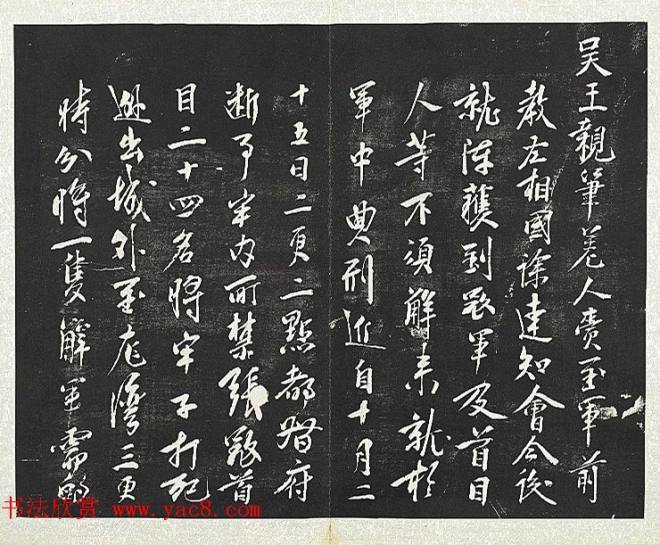 吴王親筆差人賫至軍前
教左相國徐達知會今後
就陣獲到寇軍及首目
人等不須解来就於
軍中典刑近自十月二
十五日二更二點都督府
断事牢内所禁張寇首
目二十四名將牢子打死
逃出城外至尨灣三更
時分將一隻解軍需的
书法欣赏 www.yac8.com